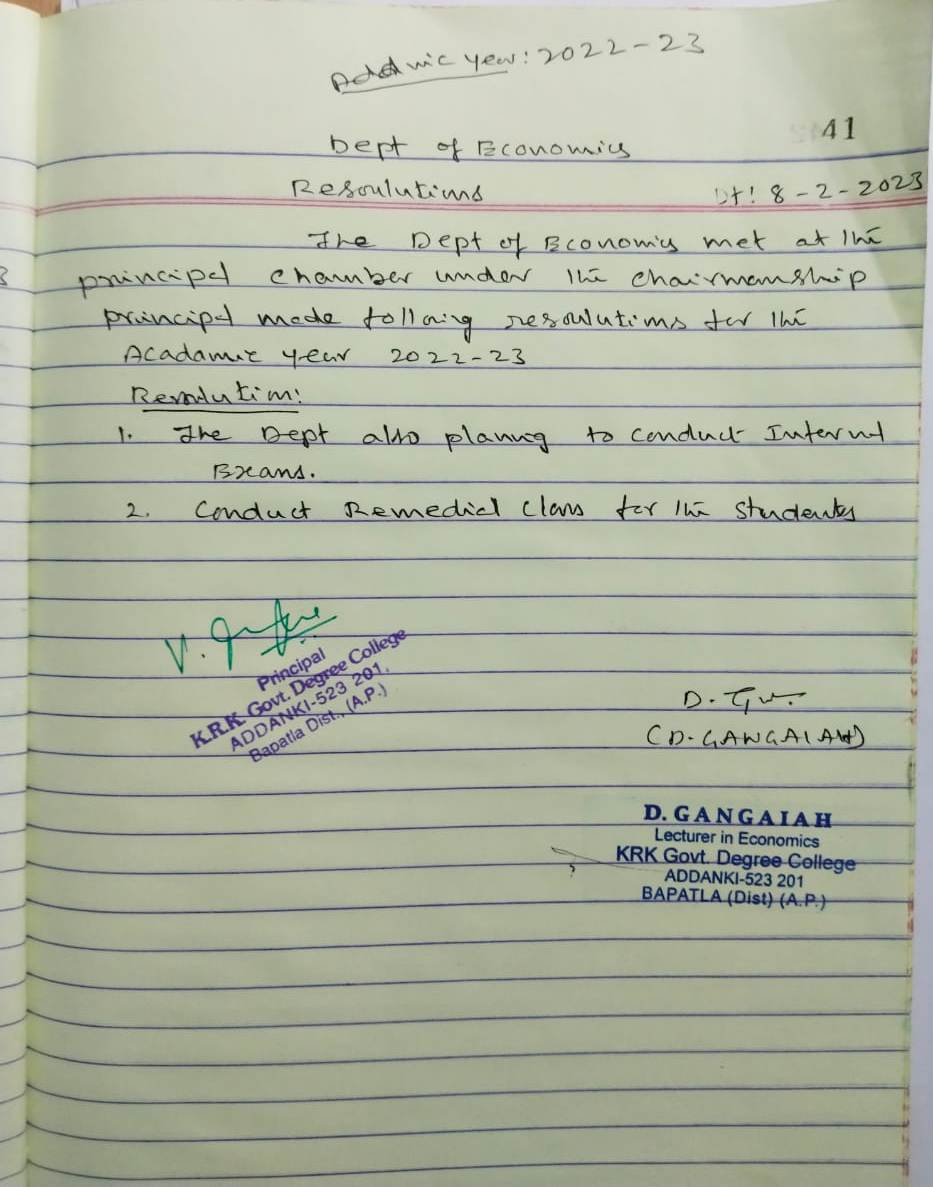 Acadmic year: 2022-23
41
Dept of Economics
Resoulutions Dt: 8-2-2023
The Dept of Economics met at the
principal chamber under the chairmanship
principal made following resoulutions for the
Acadamic year 2022-23
Resolution:
1. The Dept also planing to conduct Internal
Exams.
2. Conduct Remedial class for the students
V.
Principal
K.R.K. Govt. Degree College
ADDANKI-523 201.
Bapatla Dist., (A.P.)
D. 
(D. GANGAIAH)
D. GANGAIAH
Lecturer in Economics
KRK Govt. Degree College
ADDANKI-523 201
BAPATLA (Dist) (A.P.)